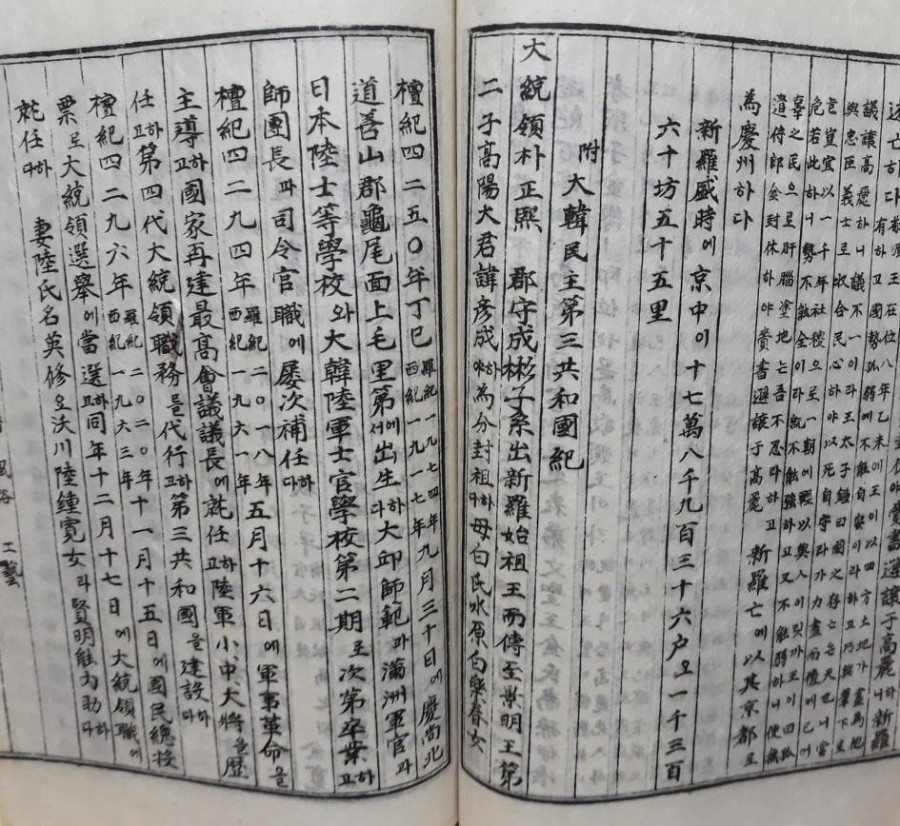 議讓高麗하니 議不一이라 王太子鎰曰國之存亡은 天己니 當
與忠臣義士로 收合民心하야 以死自守라가 力盡而後已어
豈宜以一千年社稷으로 一朝에 輕以與人이릿까 王이曰孤
危若此하니 勢不能全이라 旣不能强하고 又不能弱하니 使無
辜之民으로 肝腦塗地는 吾不忍라하고
遣侍郎金封休하야 賫書遜讓于高麗 新羅亡에 以其京都로
為慶州하다
新羅盛時에 京中이 十七萬八千九百三十六户오 一千三百
六十坊五十五里
附大韓民主第三共和國紀
大統領朴正熙 郡守成彬子系出新羅始祖王而傳至景明王第
二子高陽大君諱彦成하야 為分封祖하다 母白氏水原白樂春女
檀紀四二五〇年丁巳 羅紀一九七四年 西紀一九一七年 九月三十日에 慶尙北
道善山郡龜尾面上毛里第에서 出生하다 大邱師範과 滿洲軍官과
日本陸士等學校와 大韓陸軍士官學校第二期로 次第卒業하고
師團長과 司令官職에 屡次補任하다
檀紀四二九四年 羅紀二〇一八年 西紀一九六一年 五月十六日에 軍事革命을
主導하고 國家再建最高會議議長에 就任하고 陸軍小中大將을 歷
任하고 第四代大統領職務를 代行하고 第三共和國을 建設하다
檀紀四二九六年 羅紀二〇二〇年 西紀一九六三年 十一月十五日에 國民總投
票로 大統領選擧에 當選하고 同年十二月十七日에 大統領職에
就任하다
妻陸氏名英修오 沃川陸鍾寬女라 賢明能內助하다
風俗 工藝